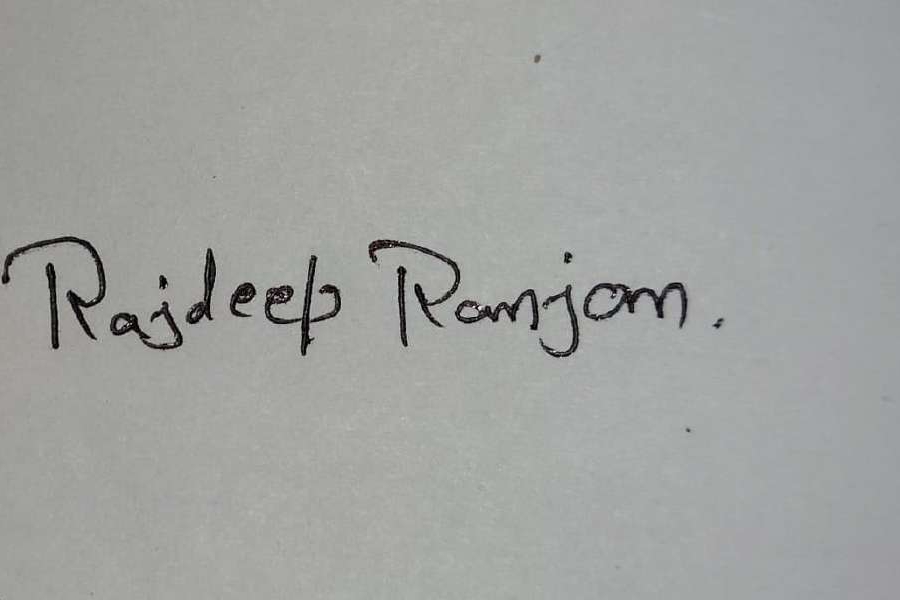 Rajdeep Ranjan.